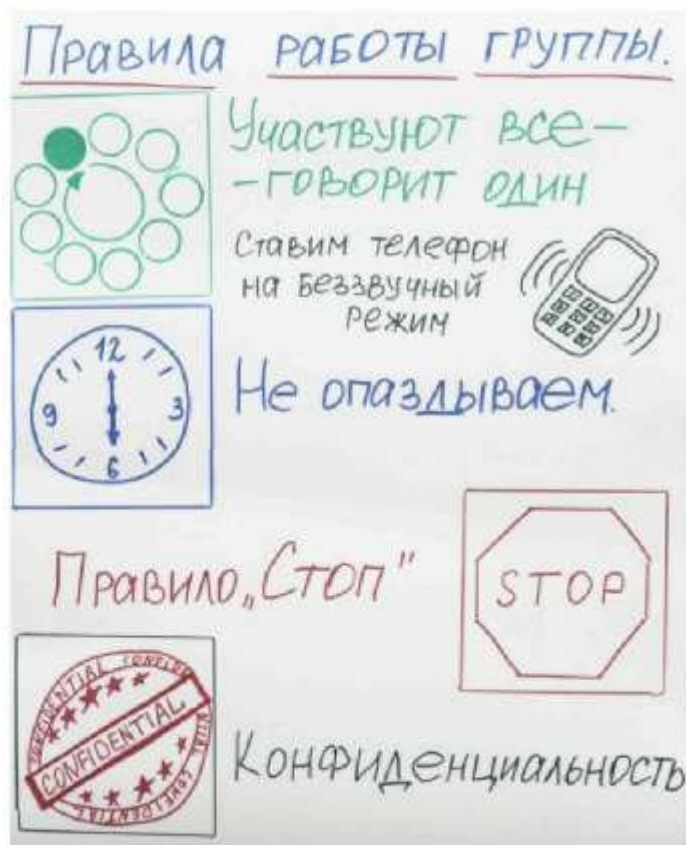 Правила работы группы.
Участвуют все-
-говорит один
Ставим телефон
на беззвучный
режим
12
9 3
6
Не опаздываем.
Правило „Стоп"
STOP
CONFIDENTIAL CONFIDENTIAL
CONFIDENTIAL
CONFIDENTIAL
Конфиденциальность